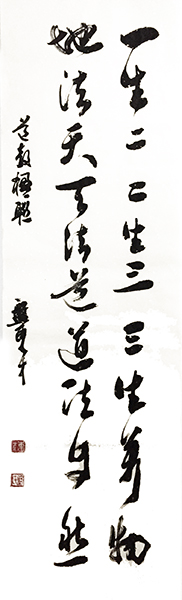 一生二二生三三生萬物
地法天天法道道法自然
道教楹聯